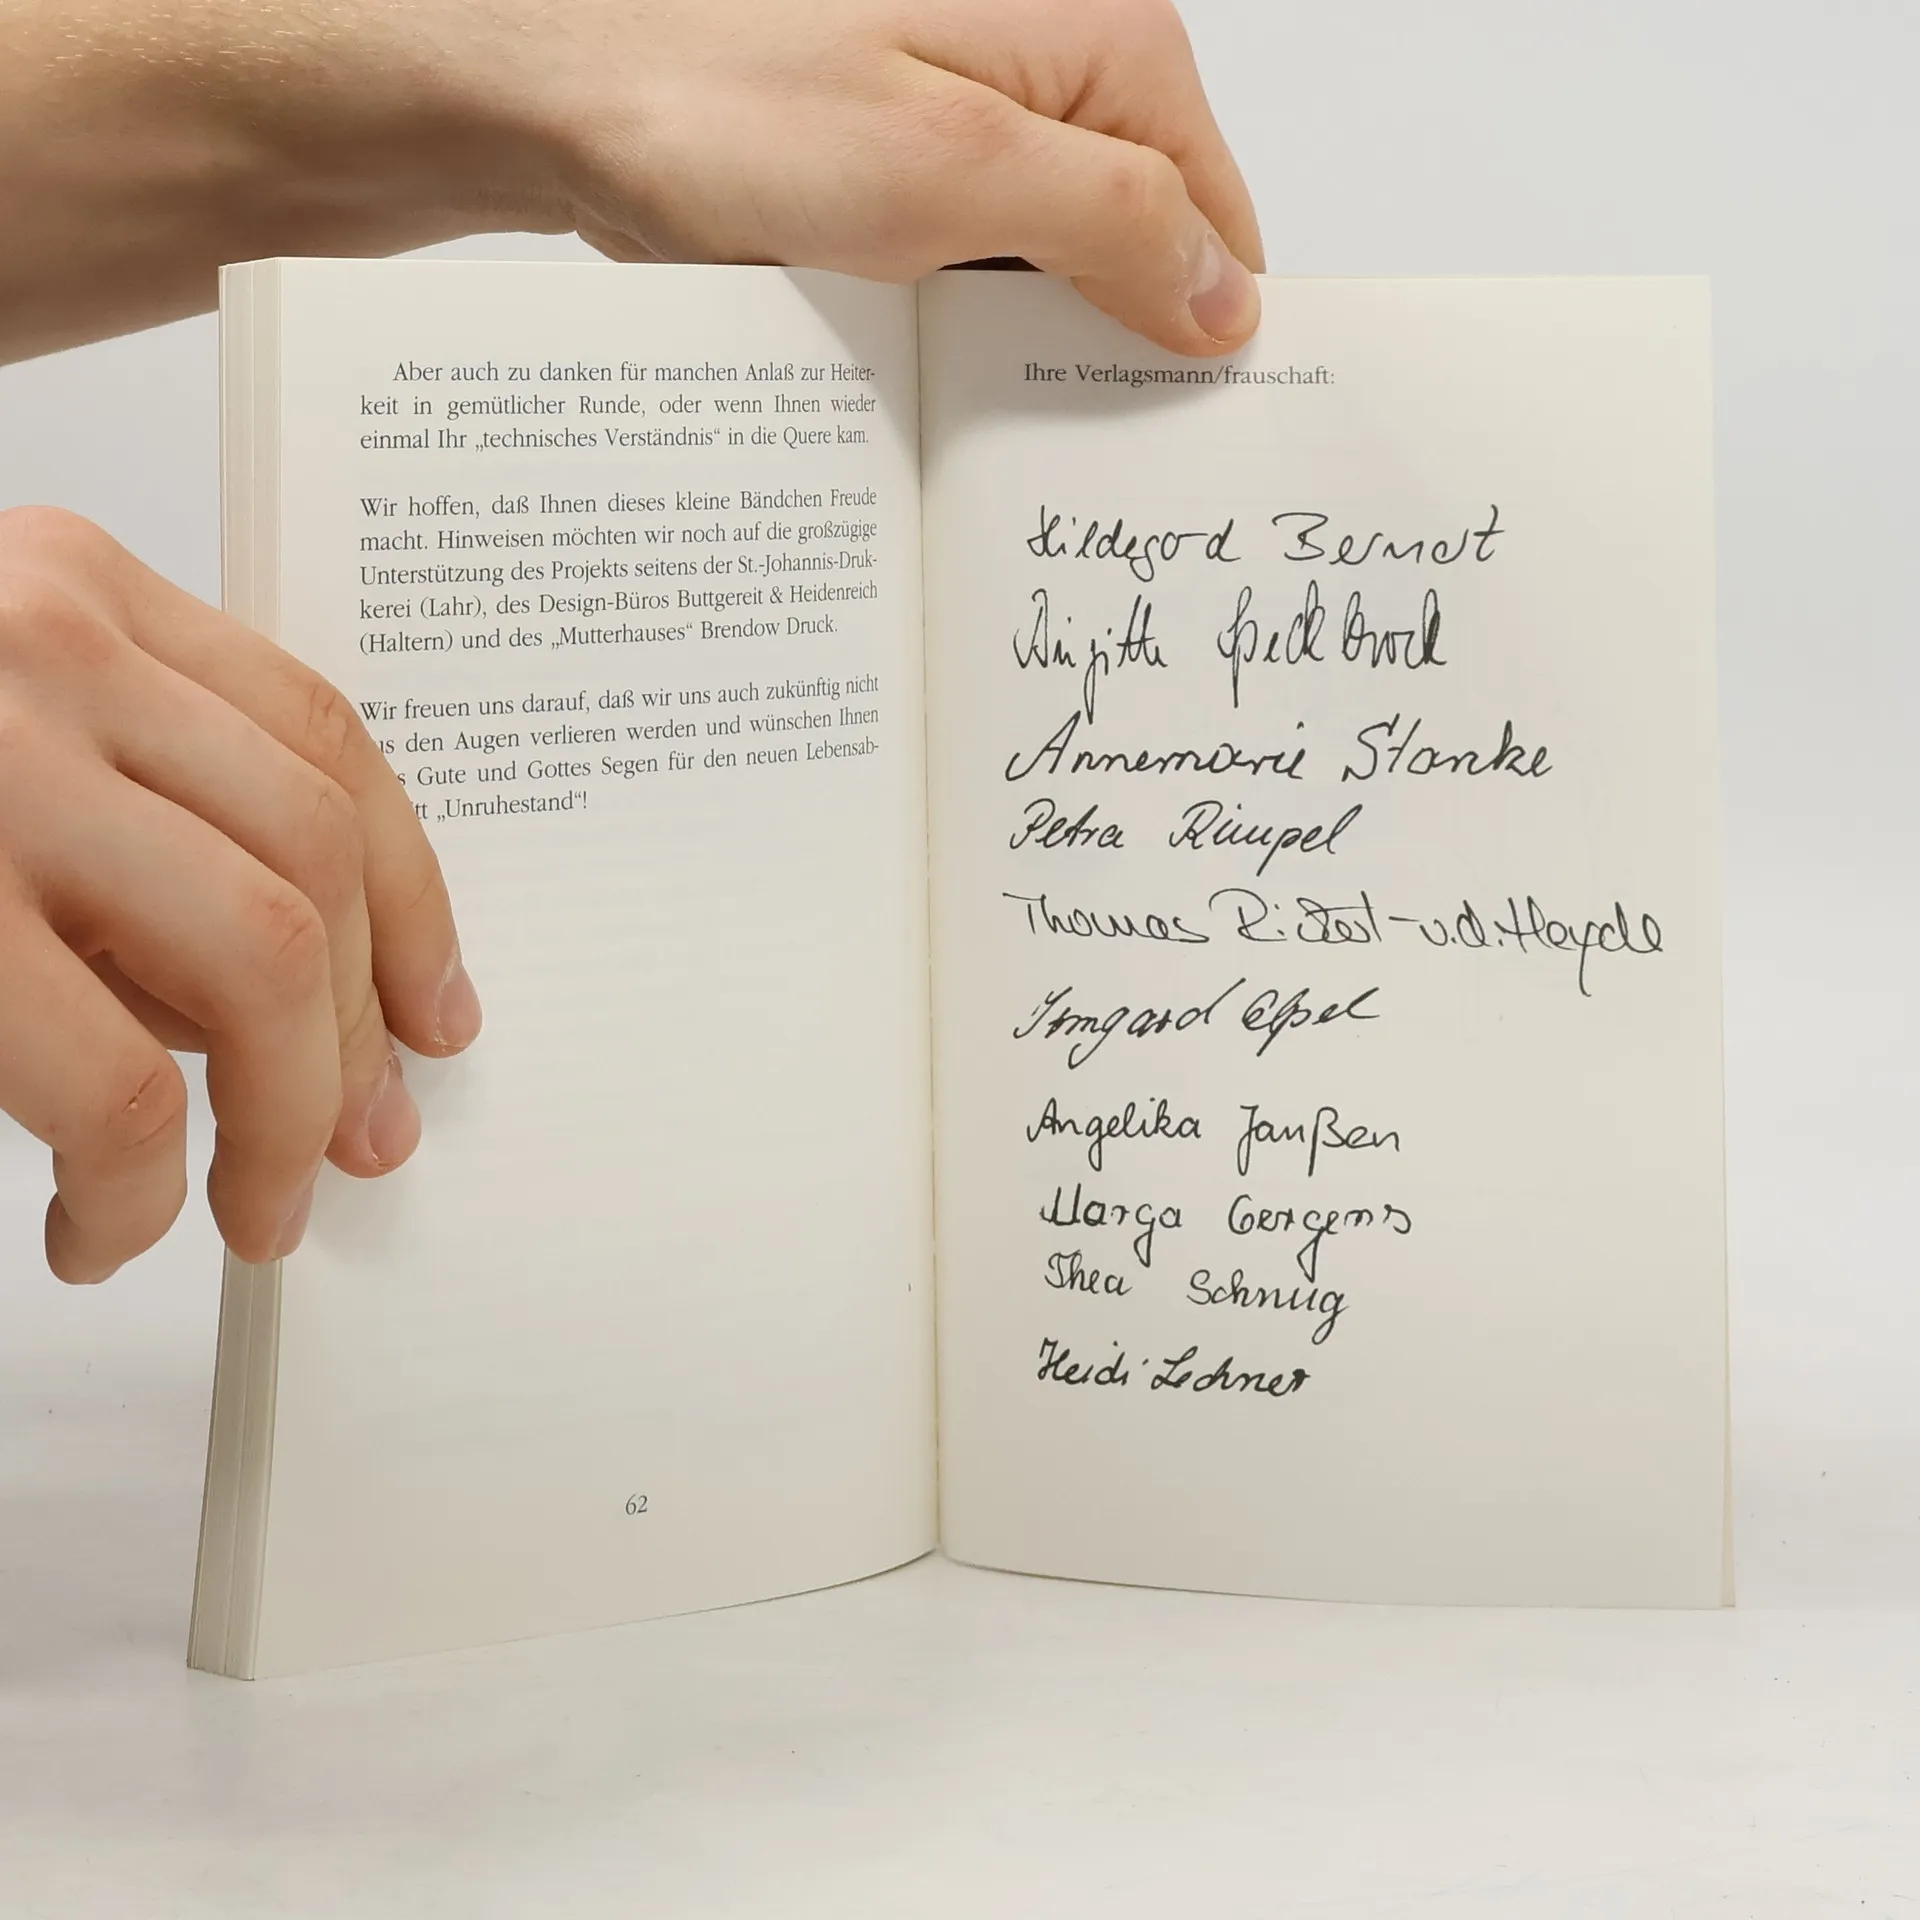 Aber auch zu danken für manchen Anlaß zur Heiter-
keit in gemütlicher Runde, oder wenn Ihnen wieder
einmal Ihr „technisches Verständnis“ in die Quere kam.
Wir hoffen, daß Ihnen dieses kleine Bändchen Freude
macht. Hinweisen möchten wir noch auf die großzügige
Unterstützung des Projekts seitens der St.-Johannis-Druk-
kerei (Lahr), des Design-Büros Buttgereit & Heidenreich
(Haltern) und des „Mutterhauses“ Brendow Druck.
Wir freuen uns darauf, daß wir uns auch zukünftig nicht
den Augen verlieren werden und wünschen Ihnen
Gute und Gottes Segen für den neuen Lebensab-
„Unruhestand“!
62
Ihre Verlagsmann/frauschaft:
Hildegard Berndt
Birgitte Speckbrock
Annemarie Stanke
Petra Rimpel
Thomas v.d. Heyde
Irmgard
Angelika Janßen
Marga Gergens
Thea Schnug
Heidi Lechner